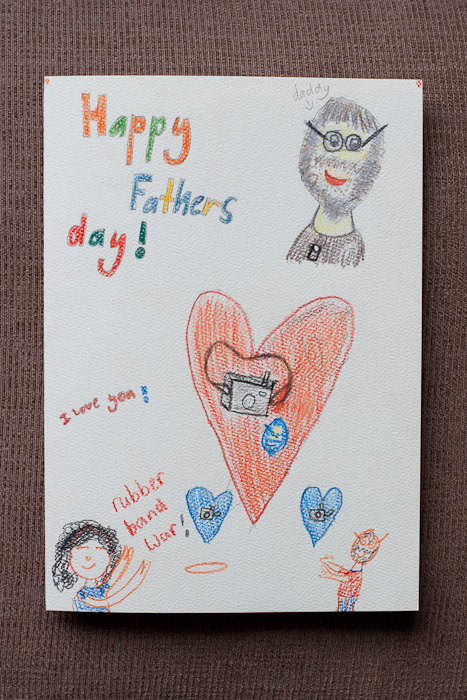 Happy
Fathers
day!
daddy
I love you!
rubber
band
war!